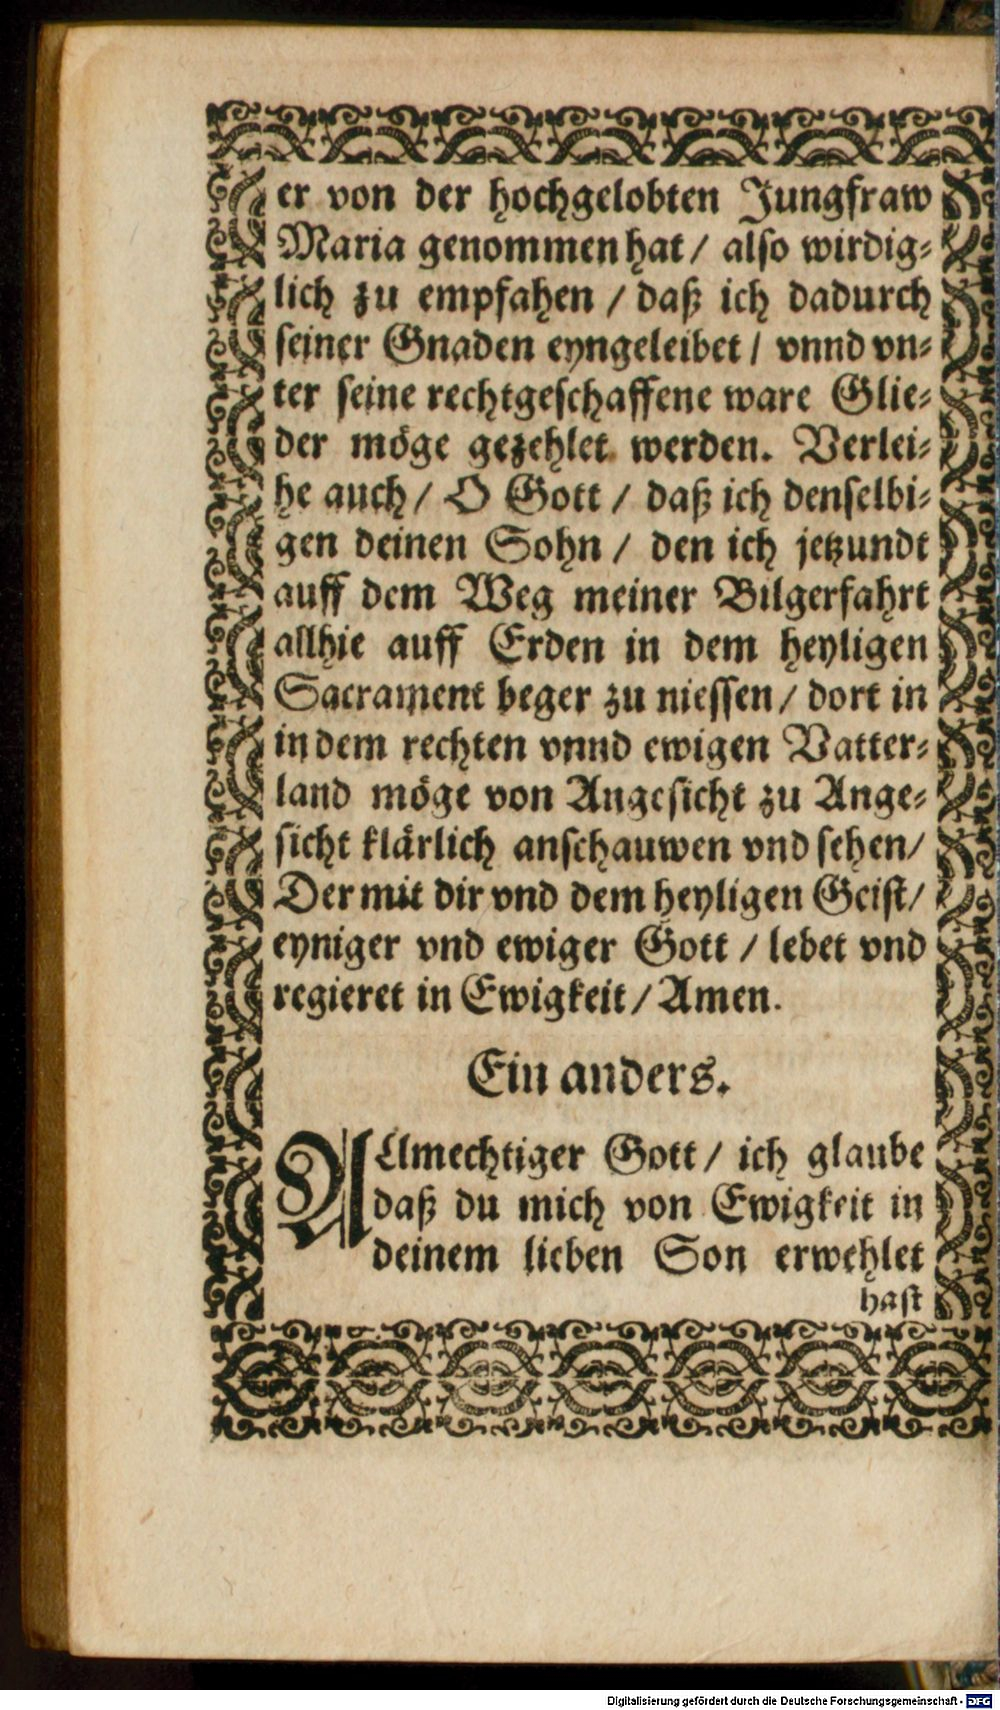 er von der hochgelobten Jungfraw
Maria genommen hat / also wirdig⸗
lich zu empfahen / daß ich dadurch
seiner Gnaden eyngeleibet / vnnd vn⸗
ter seine rechtgeschaffene ware Glie⸗
der möge gezehlet werden. Verlei⸗
he auch / O Gott / daß ich denselbi⸗
gen deinen Sohn / den ich jetzundt
auff dem Weg meiner Bilgerfahrt
allhie auff Erden in dem heyligen
Sacrament beger zu niessen / dort in
in dem rechten vnnd ewigen Vatter⸗
land möge von Angesicht zu Ange⸗
sicht klärlich anschauwen vnd sehen /
Der mit dir vnd dem heyligen Geist /
eyniger vnd ewiger Gott / lebet vnd
regieret in Ewigkeit / Amen.
Ein anders.
ALlmechtiger Gott / ich glaube
daß du mich von Ewigkeit in
deinem lieben Son erwehlet
hast
Digitalisierung gefördert durch die Deutsche Forschungsgemeinschaft - DFG